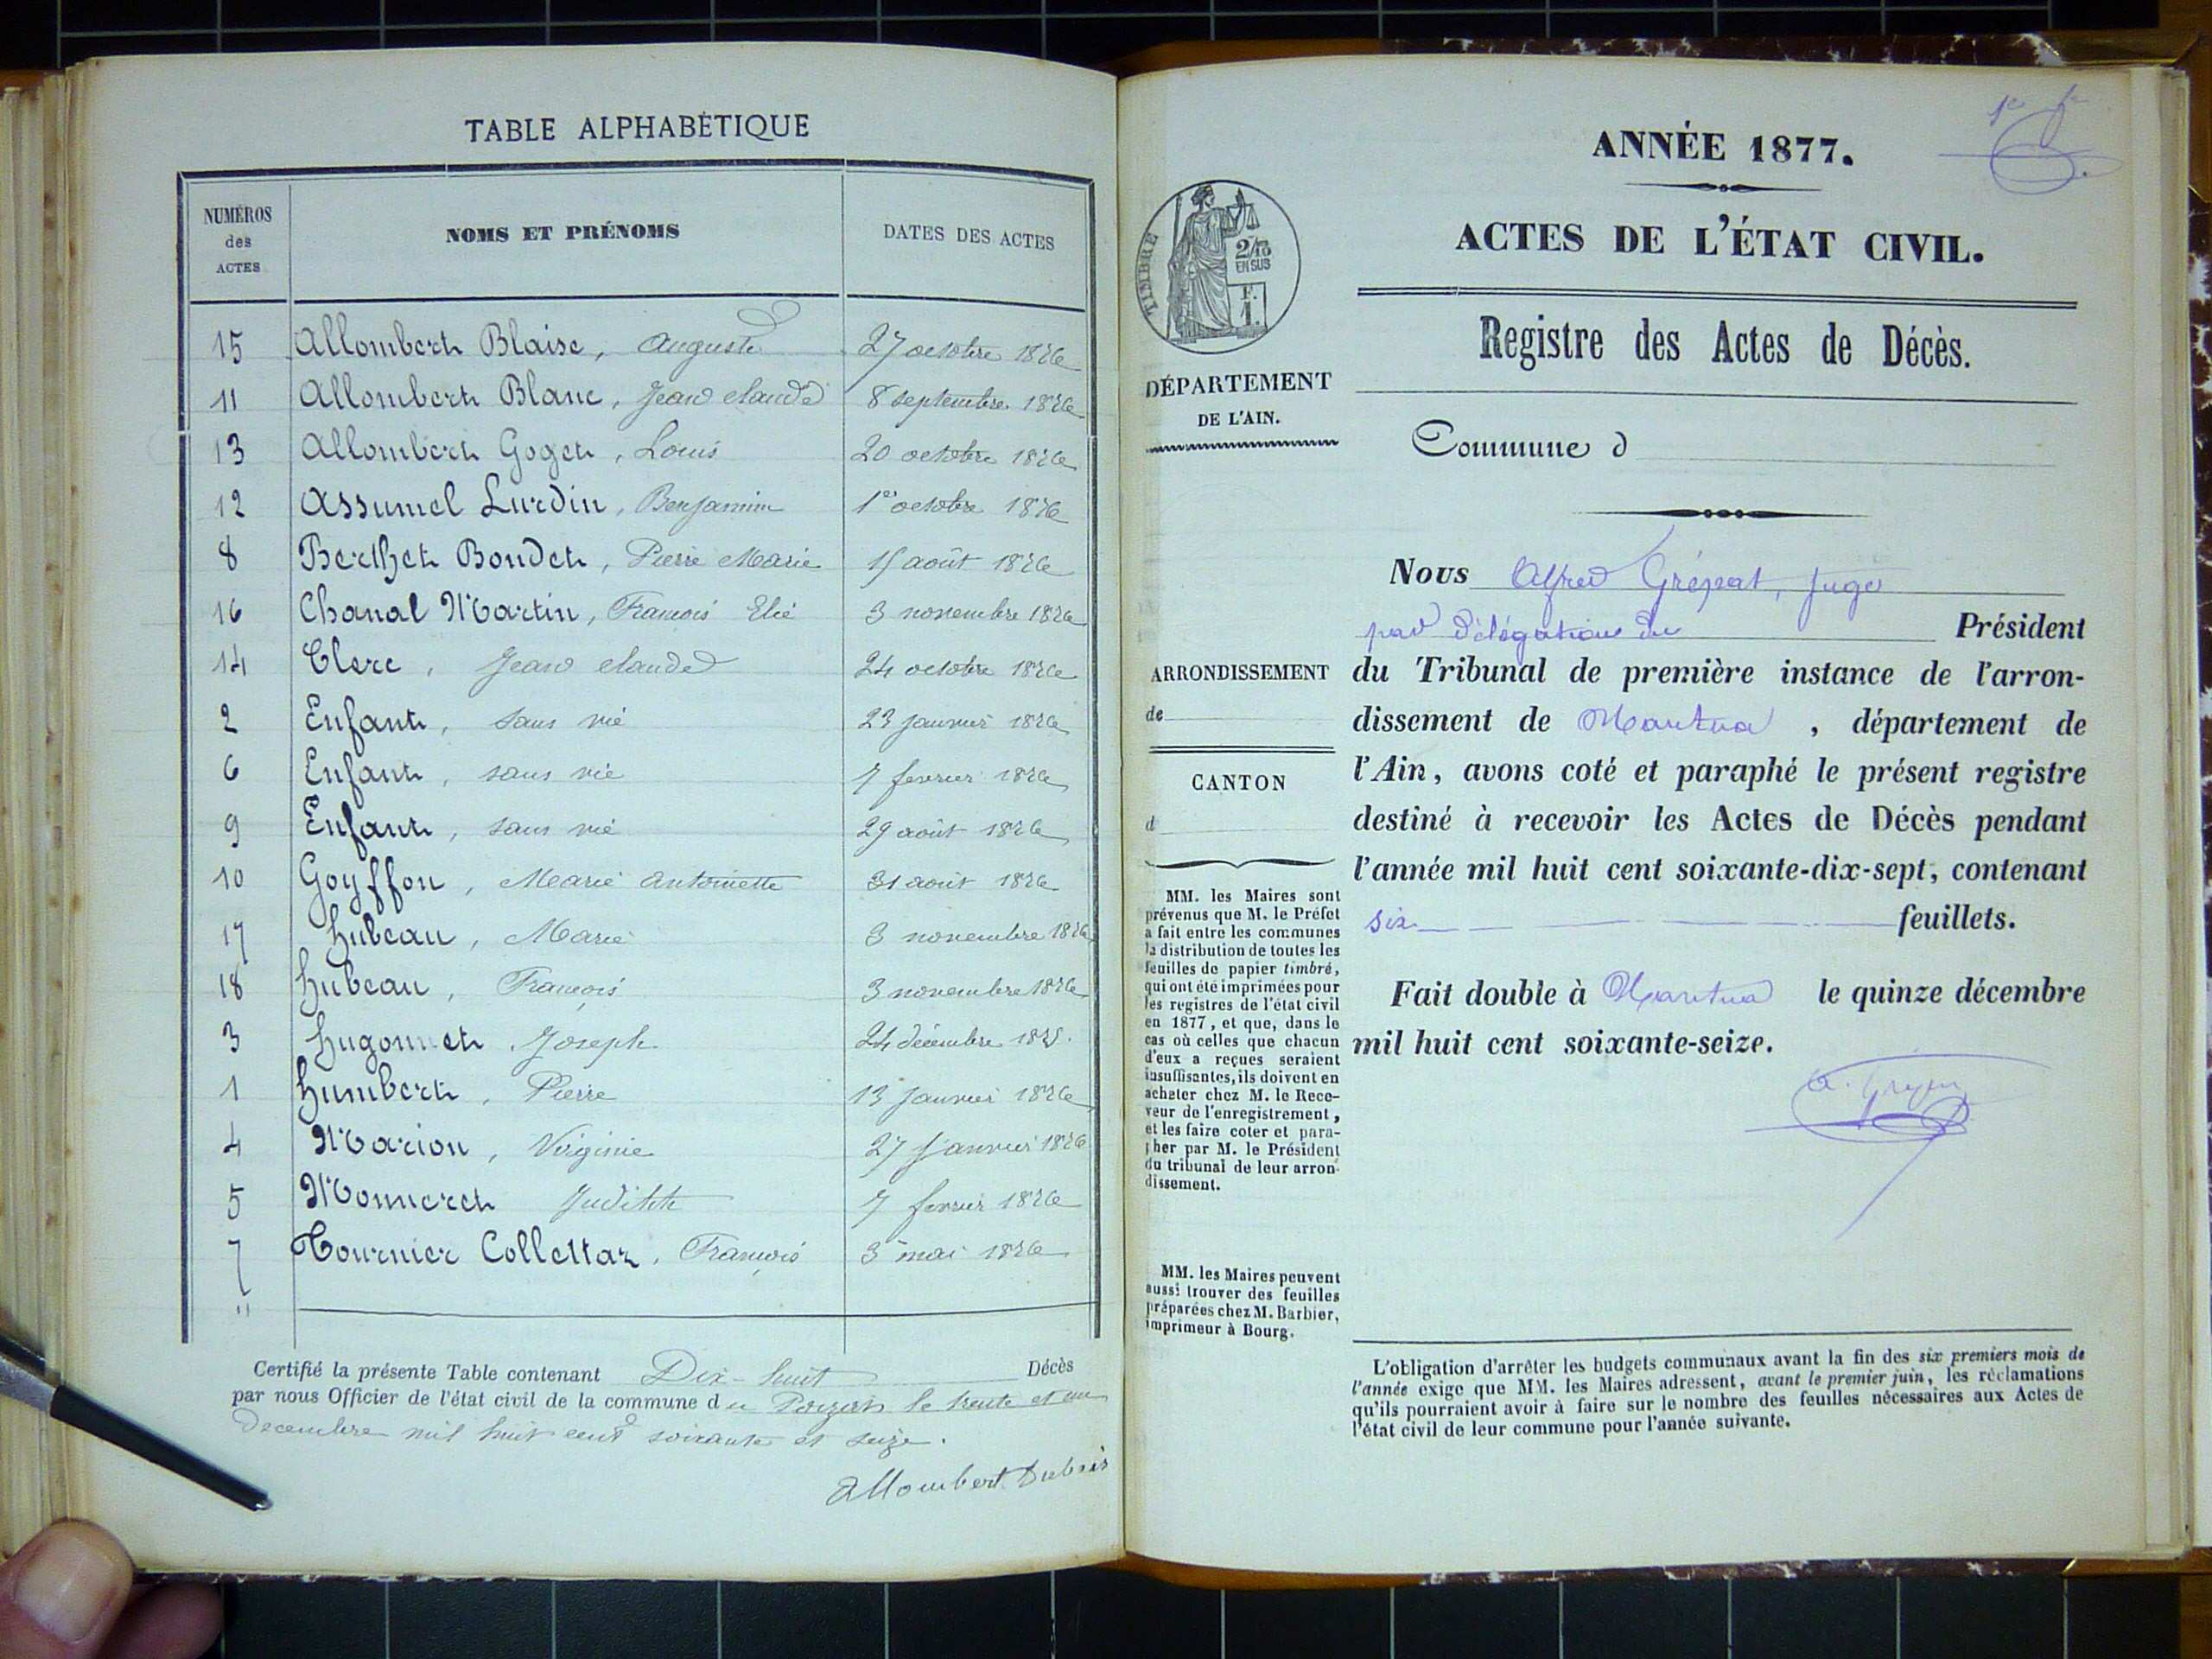 TABLE ALPHABÉTIQUE
NUMÉROS des ACTES NOMS ET PRÉNOMS DATES DES ACTES
15 Allombert Blaise, Auguste 27 octobre 1876
11 Allombert Blanc, Jean Claude 8 septembre 1876
13 Allombert Goget, Louis 20 octobre 1876
12 Assumel Lurdin, Benjamin 1er octobre 1876
8 Berthet Bondet, Pierre Marie 15 août 1876
16 Chanal Martin, François Elie 3 novembre 1876
14 Clerc, Jean Claude 24 octobre 1876
2 Enfant, sans vie 23 janvier 1876
6 Enfant, sans vie 7 fevrier 1876
9 Enfant, sans vie 29 août 1876
10 Goyffon, Marie Antoinette 31 août 1876
17 Hubeau, Marie 3 novembre 1876
18 Hubeau, François 3 novembre 1876
3 Hugonnet, Joseph 24 décembre 1875.
1 Humbert, Pierre 13 janvier 1876
4 Marion, Virginie 27 janvier 1876
5 Monneret Judith 7 fevrier 1876
7 Tournier Collettaz, François 3 mai 1876
"
Certifié la présente Table contenant Dix-huit Décès
par nous Officier de l'état civil de la commune du Poizat le trente et un
Decembre mil huit cent soixante et seize.
Allombert Dubois
ANNÉE 1877.
ACTES DE L'ÉTAT CIVIL.
TIMBRE
2/10
EN SUS
F.
1.
Registre des Actes de Décès.
DÉPARTEMENT
DE L'AIN.
Commune d
Nous Alfred Grépat, Juge
par délégation du Président
du Tribunal de première instance de l'arron-
dissement de Nantua, département de
l'Ain, avons coté et paraphé le présent registre
destiné à recevoir les Actes de Décès pendant
l'année mil huit cent soixante-dix-sept, contenant
six feuillets.
Fait double à Nantua le quinze décembre
mil huit cent soixante-seize.
ARRONDISSEMENT
de
CANTON
d
MM. les Maires sont
prévenus que M. le Préfet
a fait entre les communes
la distribution de toutes les
feuilles de papier timbré,
qui ont été imprimées pour
les registres de l'état civil
en 1877, et que, dans le
cas où celles que chacun
d'eux a reçues seraient
insuffisantes, ils doivent en
acheter chez M. le Rece-
veur de l'enregistrement,
et les faire coter et para-
pher par M. le Président
du tribunal de leur arron-
dissement.
MM. les Maires peuvent
aussi trouver des feuilles
préparées chez M. Barbier,
imprimeur à Bourg.
L'obligation d'arrêter les budgets communaux avant la fin des six premiers mois de
l'année exige que MM. les Maires adressent, avant le premier juin, les réclamations
qu'ils pourraient avoir à faire sur le nombre des feuilles nécessaires aux Actes de
l'état civil de leur commune pour l'année suivante.